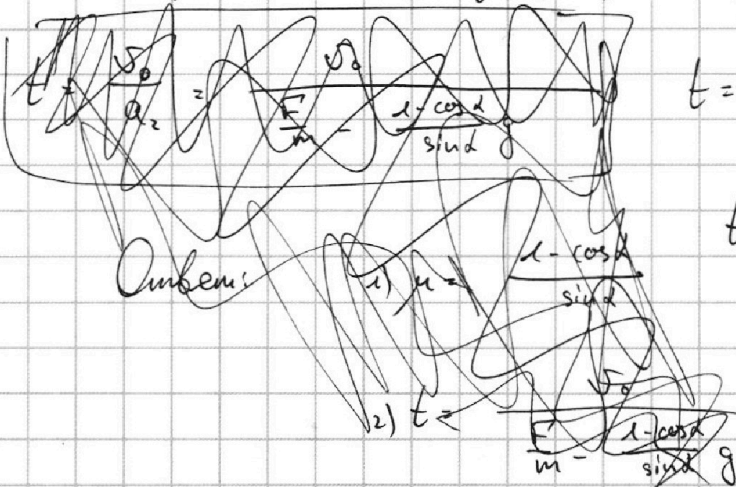 t = v₀/a₂ = v₀/(F/m - (1-cosα)/sinα g)
t =
t
Ответ: 1) μ = (1-cosα)/sinα
2) t = v₀/(F/m - (1-cosα)/sinα g)